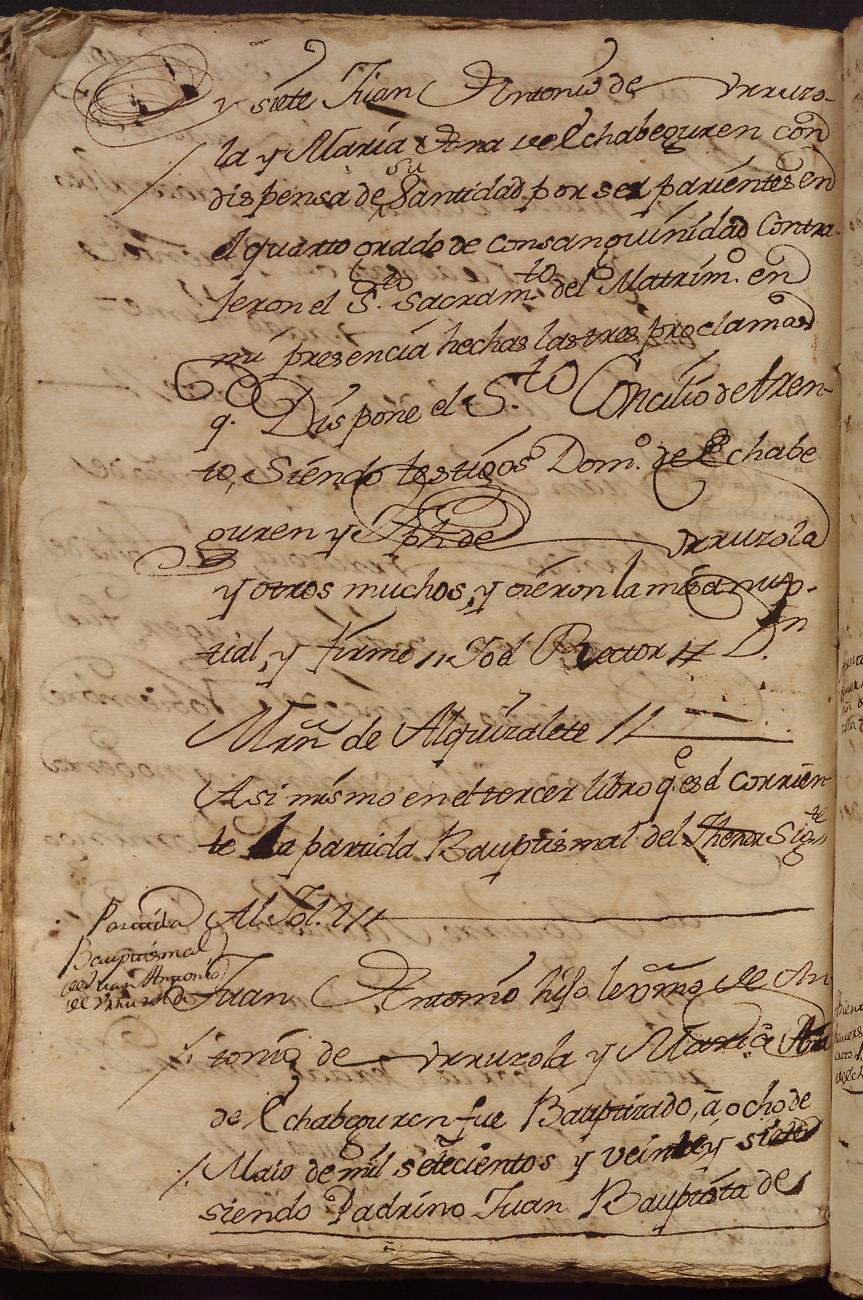 y siete Juan Antonio de Urruzo-
la y María Ana de Echabeguren con
dispensa de su Santidad por ser parientes en
el quarto grado de consanguinidad Contra-
jeron el S.to Sacram.to del Matrim.o en
mi presencia hechas las tres proclamas
q. Dispone el S.to Concilio de tren-
to, Siendo testigos Dom.o de Echabe
guren y Jph de Urruzola
y otros muchos, y oieron la misa nup-
tial, y firmé // Yo el Rector // D.n
Mrñ de Alquizalete //
Asi mismo en el tercer libro q.e es el corrien-
te la partida Bauptismal del thenor Sig.te
Al fol. 2 //
Partida
Bauptismal
de Juan Antonio
de Urruzola
Juan Antonio hijo lexmo de An
tonio de Urruzola y Maria Ana
de Echabeguren fue Bauptizado, a ocho de
Maio de mil setecientos y veinte y siete
siendo Padrino Juan Bauptista de